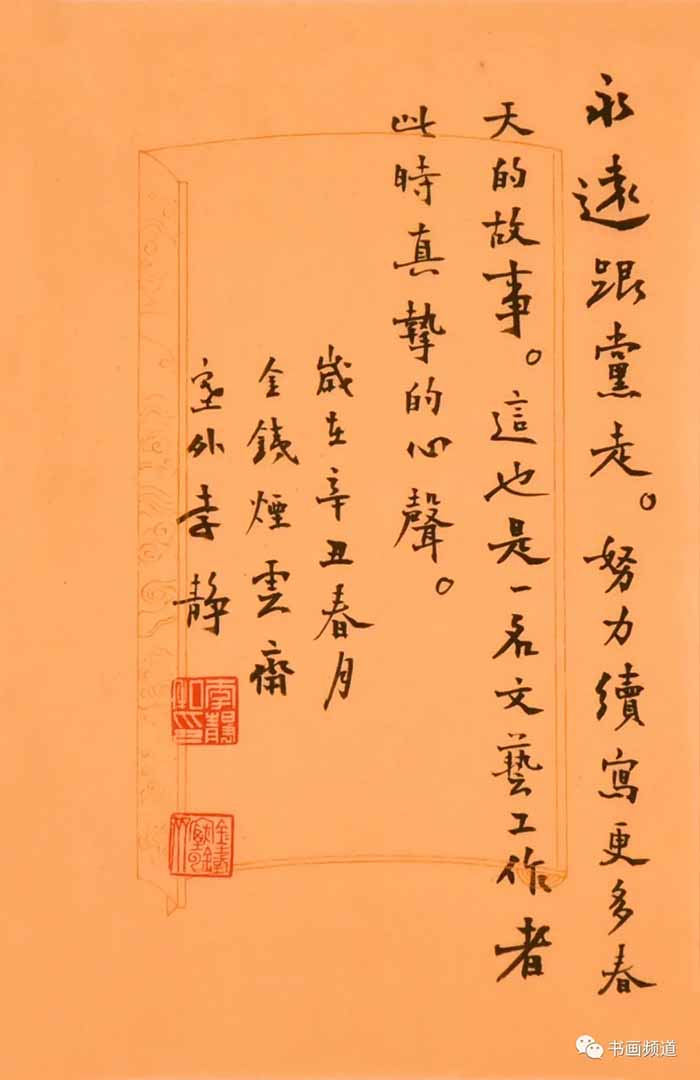 永遠跟黨走。努力續寫更多春
天的故事。這也是一名文藝工作者
此時真摯的心聲。
歲在辛丑春月
金錢煙雲齋
塞外李靜
书画频道